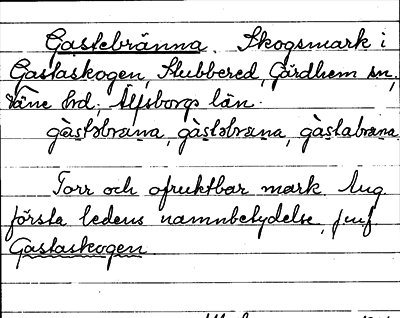 Gastebränna. Skogsmark i
Gastaskogen, Stubbered, Gärdhem sn,
Väne hd, Älfsborgs län.
gàstəbräna, gàstəbräna, gàstabräna
Torr och ofruktbar mark. Ang
första ledens namnbetydelse, jmf
Gastaskogen.